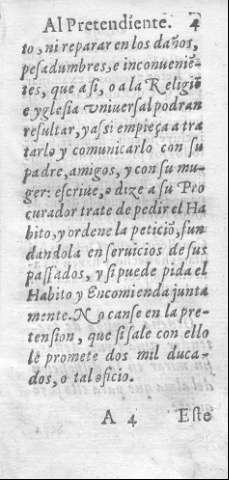 Al Pretendiente. 4
to, ni reparar en los daños,
pesadumbres, e inconueniē-
tes, que a si, o a la Religiō
e yglesia vniuersal podran
resultar, y assi empieça a tra
tarlo y comunicarlo con su
padre, amigos, y con su mu-
ger: escriue, o dize a su Pro
curador trate de pedir el Ha
bito, y ordene la peticiō, fun
dandola en seruicios de sus
passados, y si puede pida el
Habito y Encomienda junta
mente. No canse en la pre-
tension, que si sale con ello
le promete dos mil duca-
dos, o tal oficio.
A 4 Este